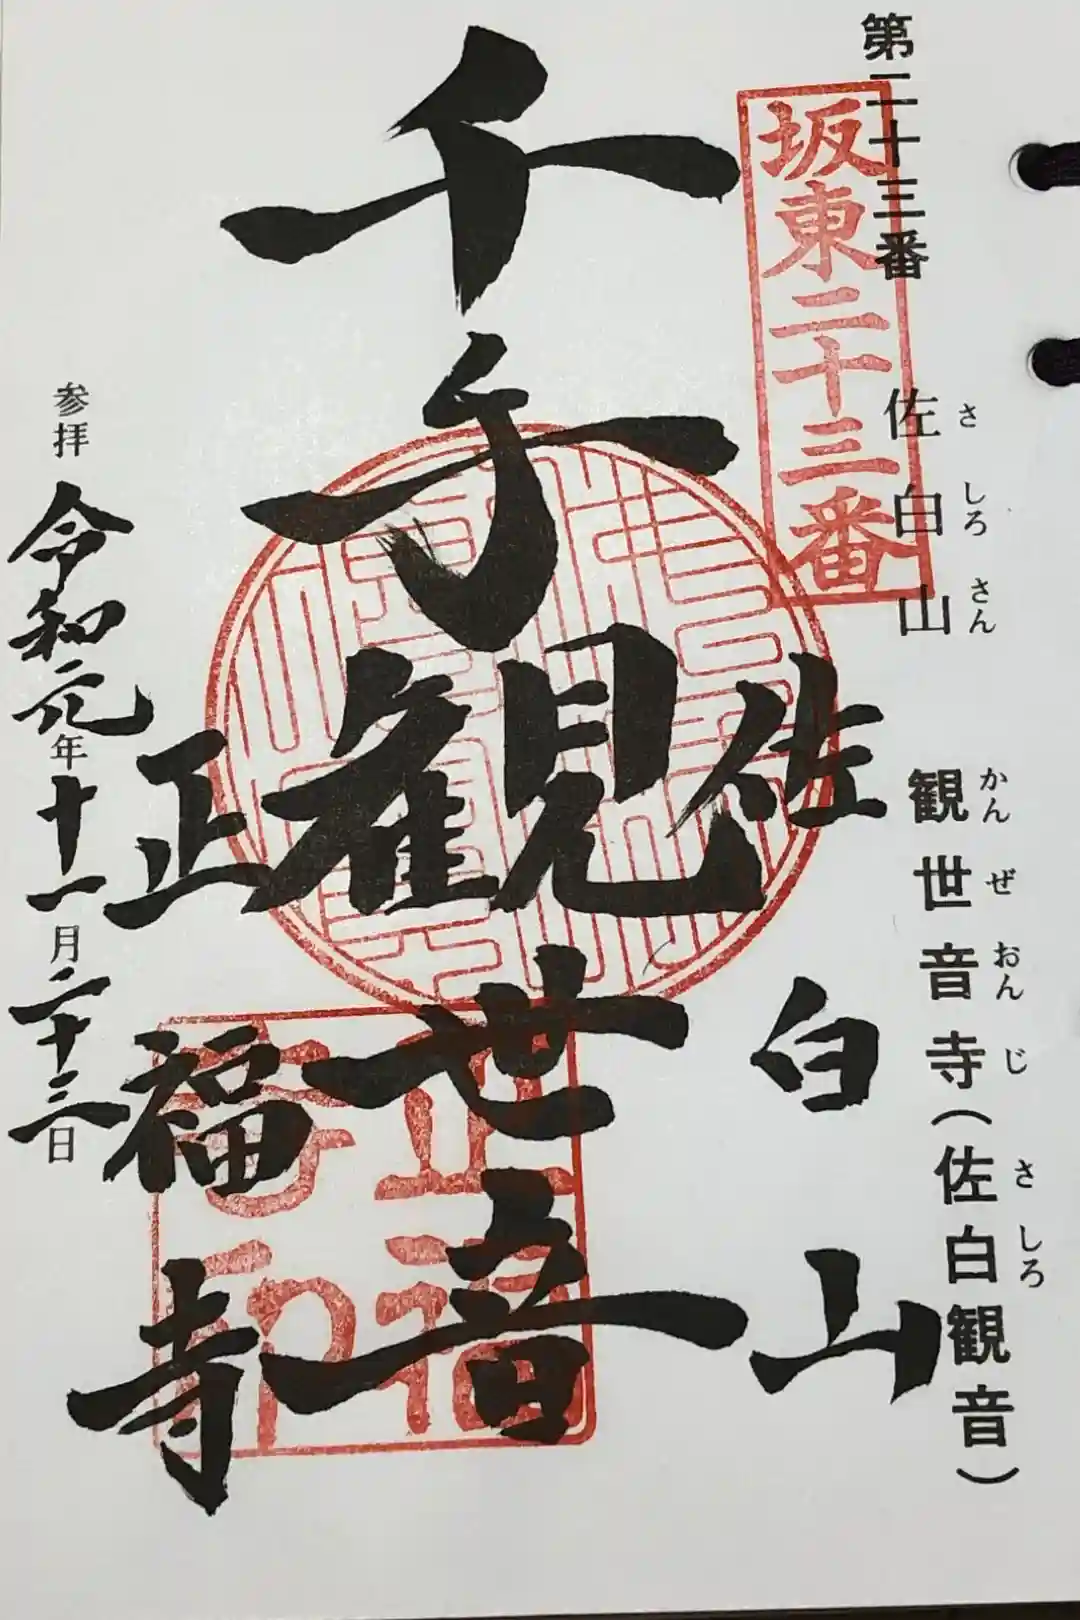 第二十三番
佐白山
さしろさん
観世音寺(佐白観音)
かんぜおんじ
さしろ
坂東二十三番
佐白山
千手観世音
正福寺
正福寺印
参拝 令和元年十一月二十三日